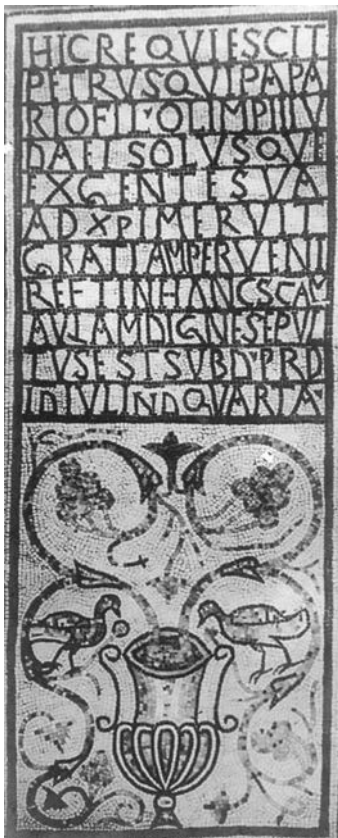 HICREQVIESCIT
PETRVSQVIPAPA
RIOFIL'OLIMPIIIV
DAEISOLVSQVE
EXGENTESVA
ADXPIMERVIT
GRATIAMPERVENI
REETINHANCSCAM
AVLAMDIGNESEPVL
TVSESTSVBD'PRD
IDIVLINDQVARTA'